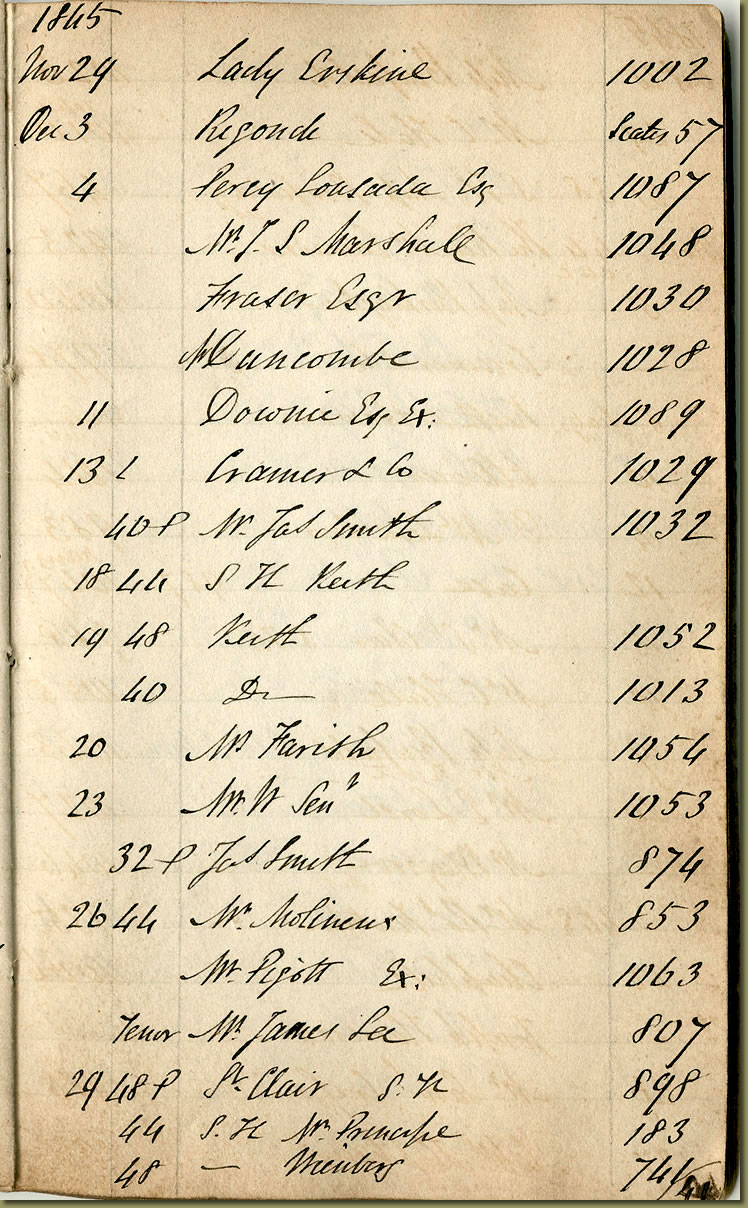 1845
Nov 29 Lady Erskine 1002
Dec 3 Regondi 57
4 Percy Lousada Esq 1087
Mr. J. S Marshall 1048
Fraser Esqr 1030
Duncombe 1028
11 Downie Esq Ex: 1089
13 Cramer & Co 1029
40 P Mr. Jas Smith 1032
18 44 S H Keith
19 48 Keith 1052
40 Do 1013
20 Farish 1054
23 Mr. W Senr 1053
32 P Jas Smith 874
26 44 Mr. Molineux 853
Mr. Pigott Ex: 1063
Tenor Mr. James Lee 807
29 48 P St. Clair S. H 898
44 S. H Principe 183
48 —